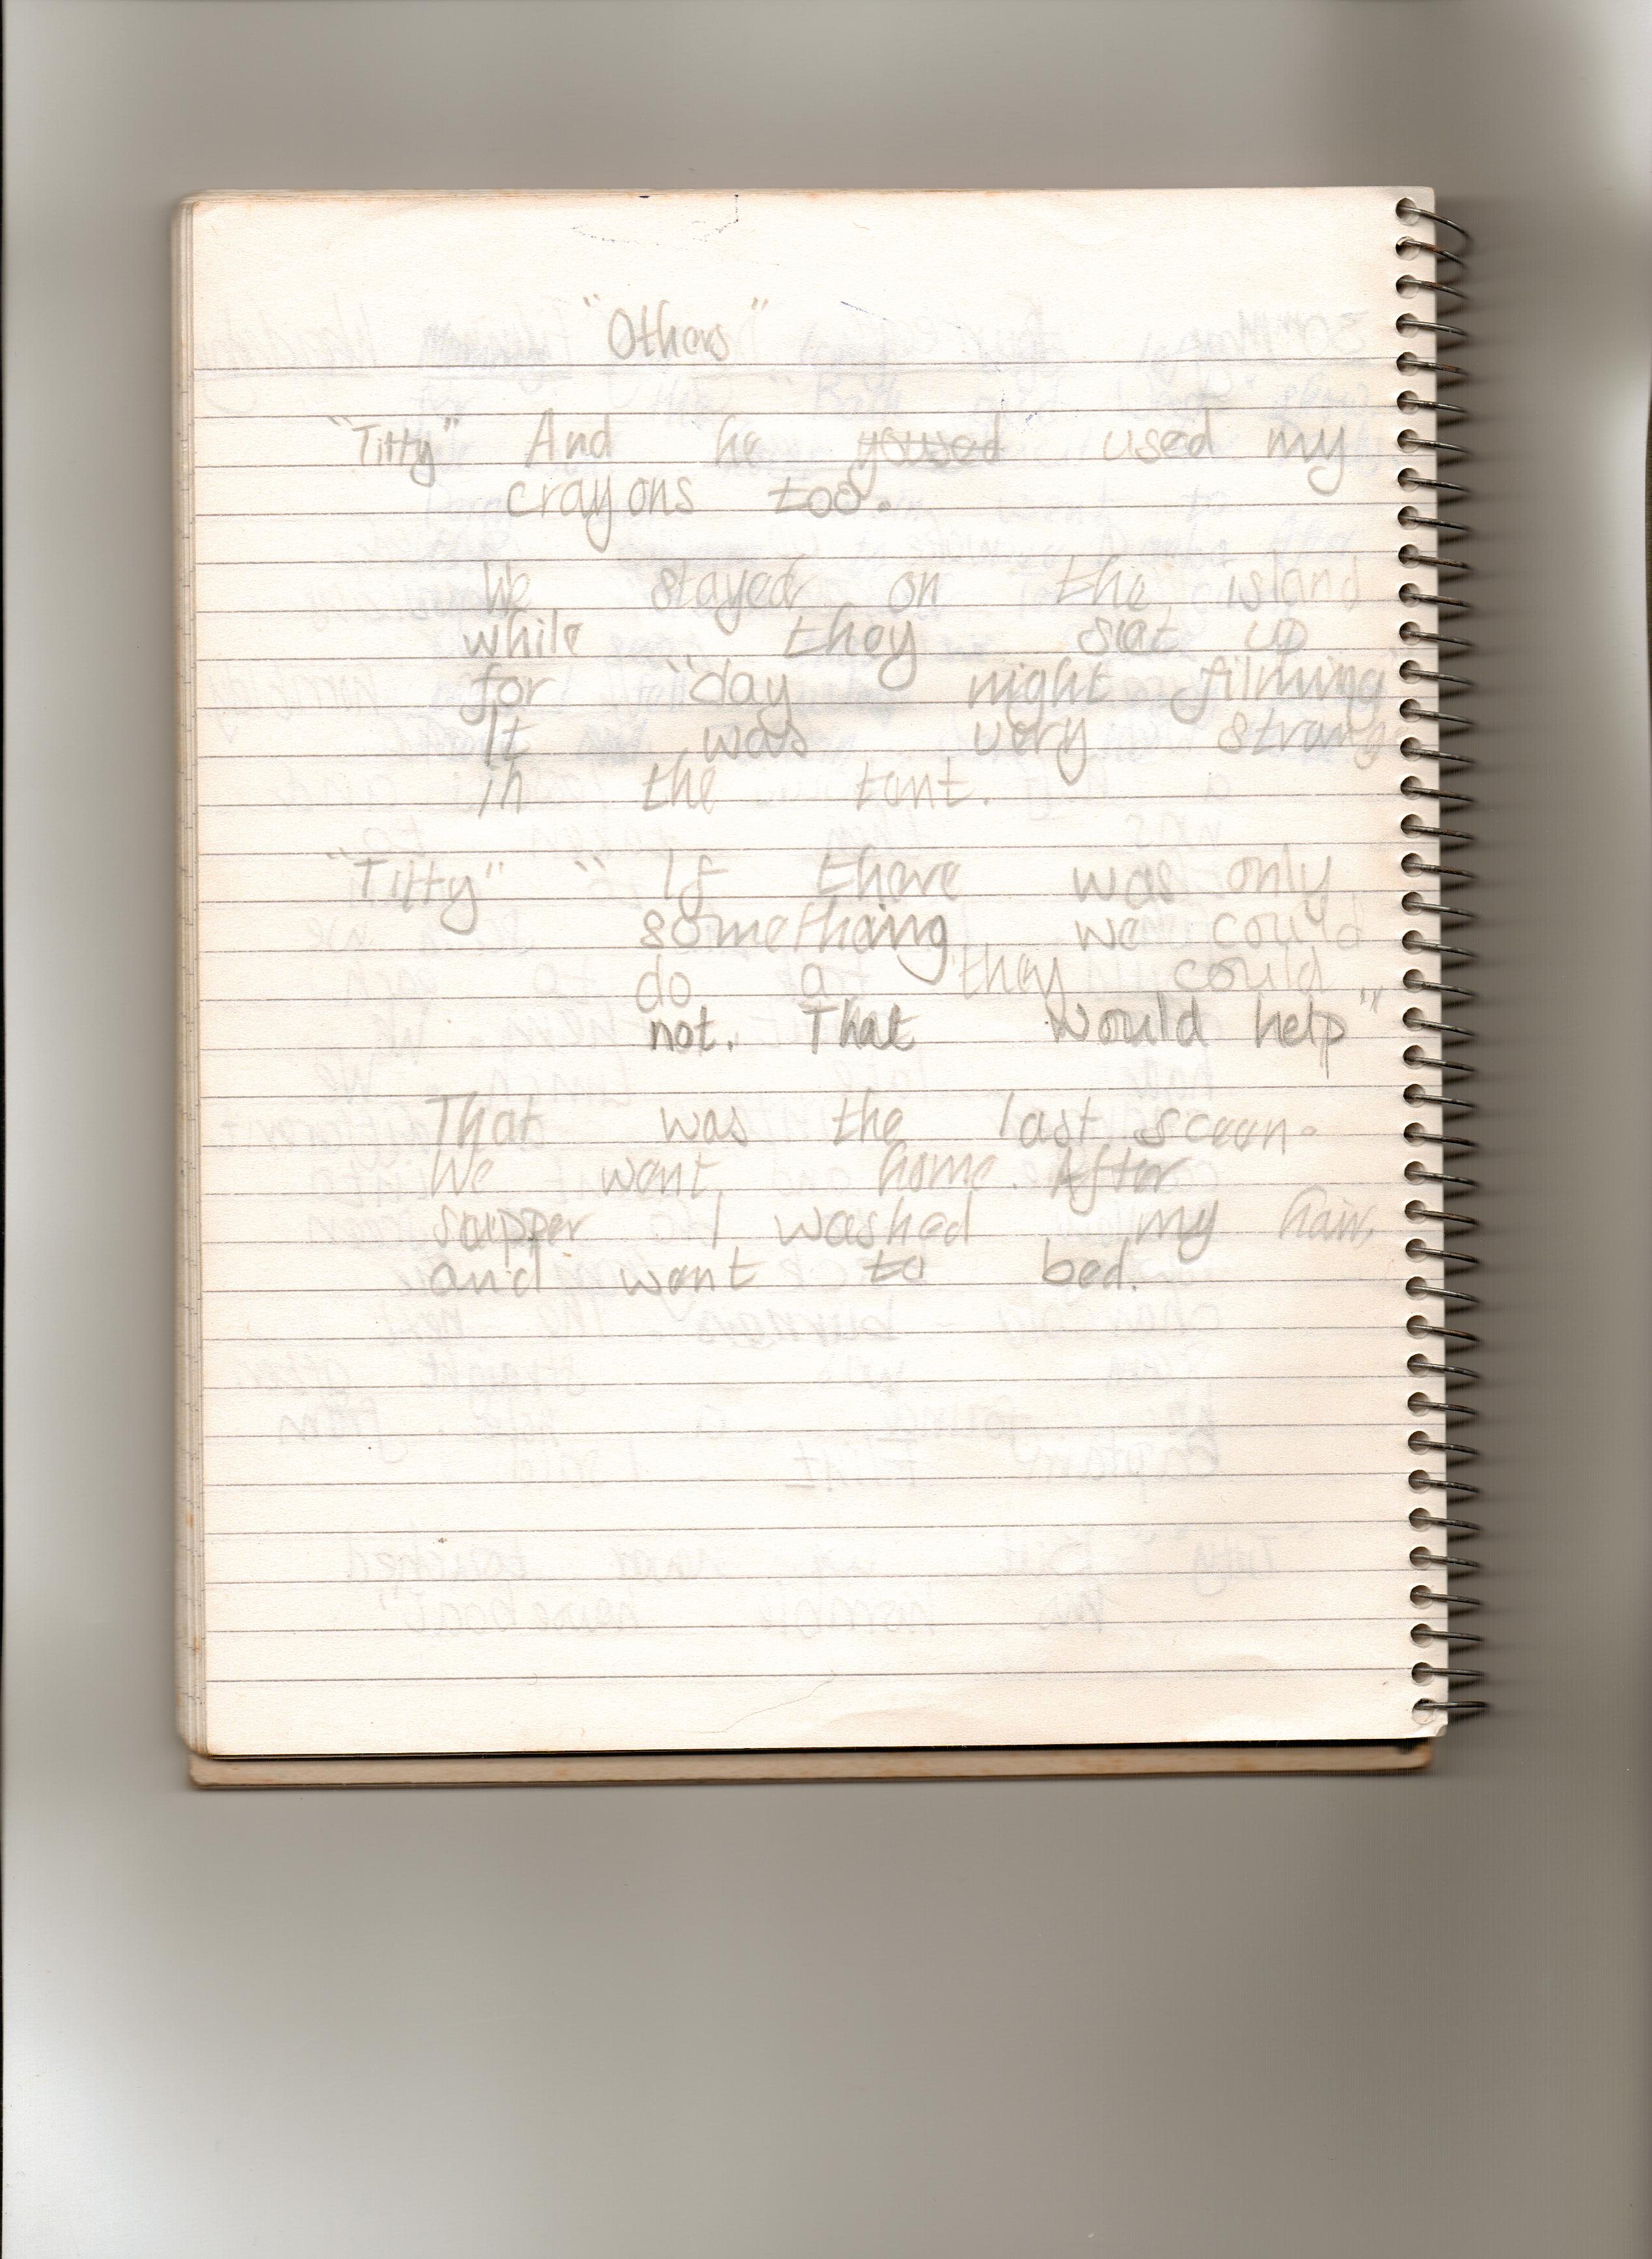 "Others"
"Titty" And he yoused used my
crayons too.
We stayed on the island
while they sat up
for "day night filming"
It was very strang
in the tent.
"Titty" "If there was only
something we could
do a they could
not. That would help"
That was the last sceen.
We went home. After
supper I washed my hair,
and went to bed.